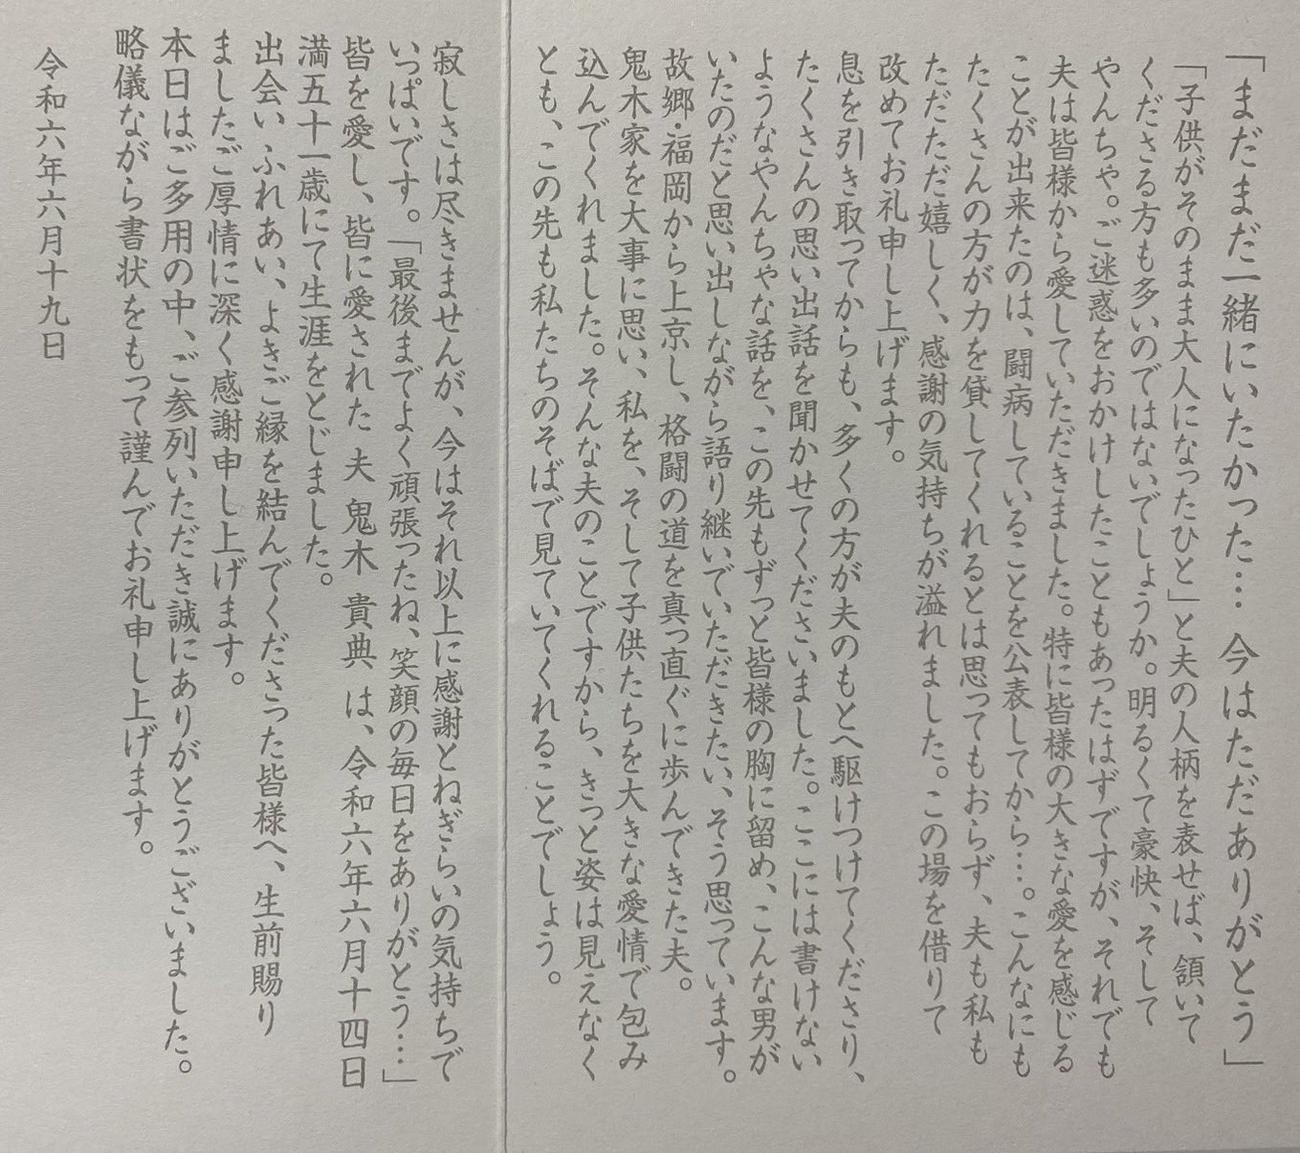 「まだまだ一緒にいたかった… 今はただありがとう」
「子供がそのまま大人になったひと」と夫の人柄を表せば、頷いて
くださる方も多いのではないでしょうか。明るくて豪快、そして
やんちゃ。ご迷惑をおかけしたこともあったはずですが、それでも
夫は皆様から愛していただきました。特に皆様の大きな愛を感じる
ことが出来たのは、闘病していることを公表してから…。こんなにも
たくさんの方が力を貸してくれるとは思ってもおらず、夫も私も
ただただ嬉しく、感謝の気持ちが溢れました。この場を借りて
改めてお礼申し上げます。
息を引き取ってからも、多くの方が夫のもとへ駆けつけてくださり、
たくさんの思い出話を聞かせてくださいました。ここには書けない
ようなやんちゃな話を、この先もずっと皆様の胸に留め、こんな男が
いたのだと思い出しながら語り継いでいただきたい、そう思っています。
故郷・福岡から上京し、格闘の道を真っ直ぐに歩んできた夫。
鬼木家を大事に思い、私を、そして子供たちを大きな愛情で包み
込んでくれました。そんな夫のことですから、きっと姿は見えなく
とも、この先も私たちのそばで見ていてくれることでしょう。
寂しさは尽きませんが、今はそれ以上に感謝とねぎらいの気持ちで
いっぱいです。「最後までよく頑張ったね、笑顔の毎日をありがとう…」
皆を愛し、皆に愛された 夫 鬼木 貴典 は、令和六年六月十四日
満五十一歳にて生涯をとじました。
出会い ふれあい、よきご縁を結んでくださった皆様へ、生前賜り
ましたご厚情に深く感謝申し上げます。
本日はご多用の中、ご参列いただき誠にありがとうございました。
略儀ながら書状をもって謹んでお礼申し上げます。
令和六年六月十九日